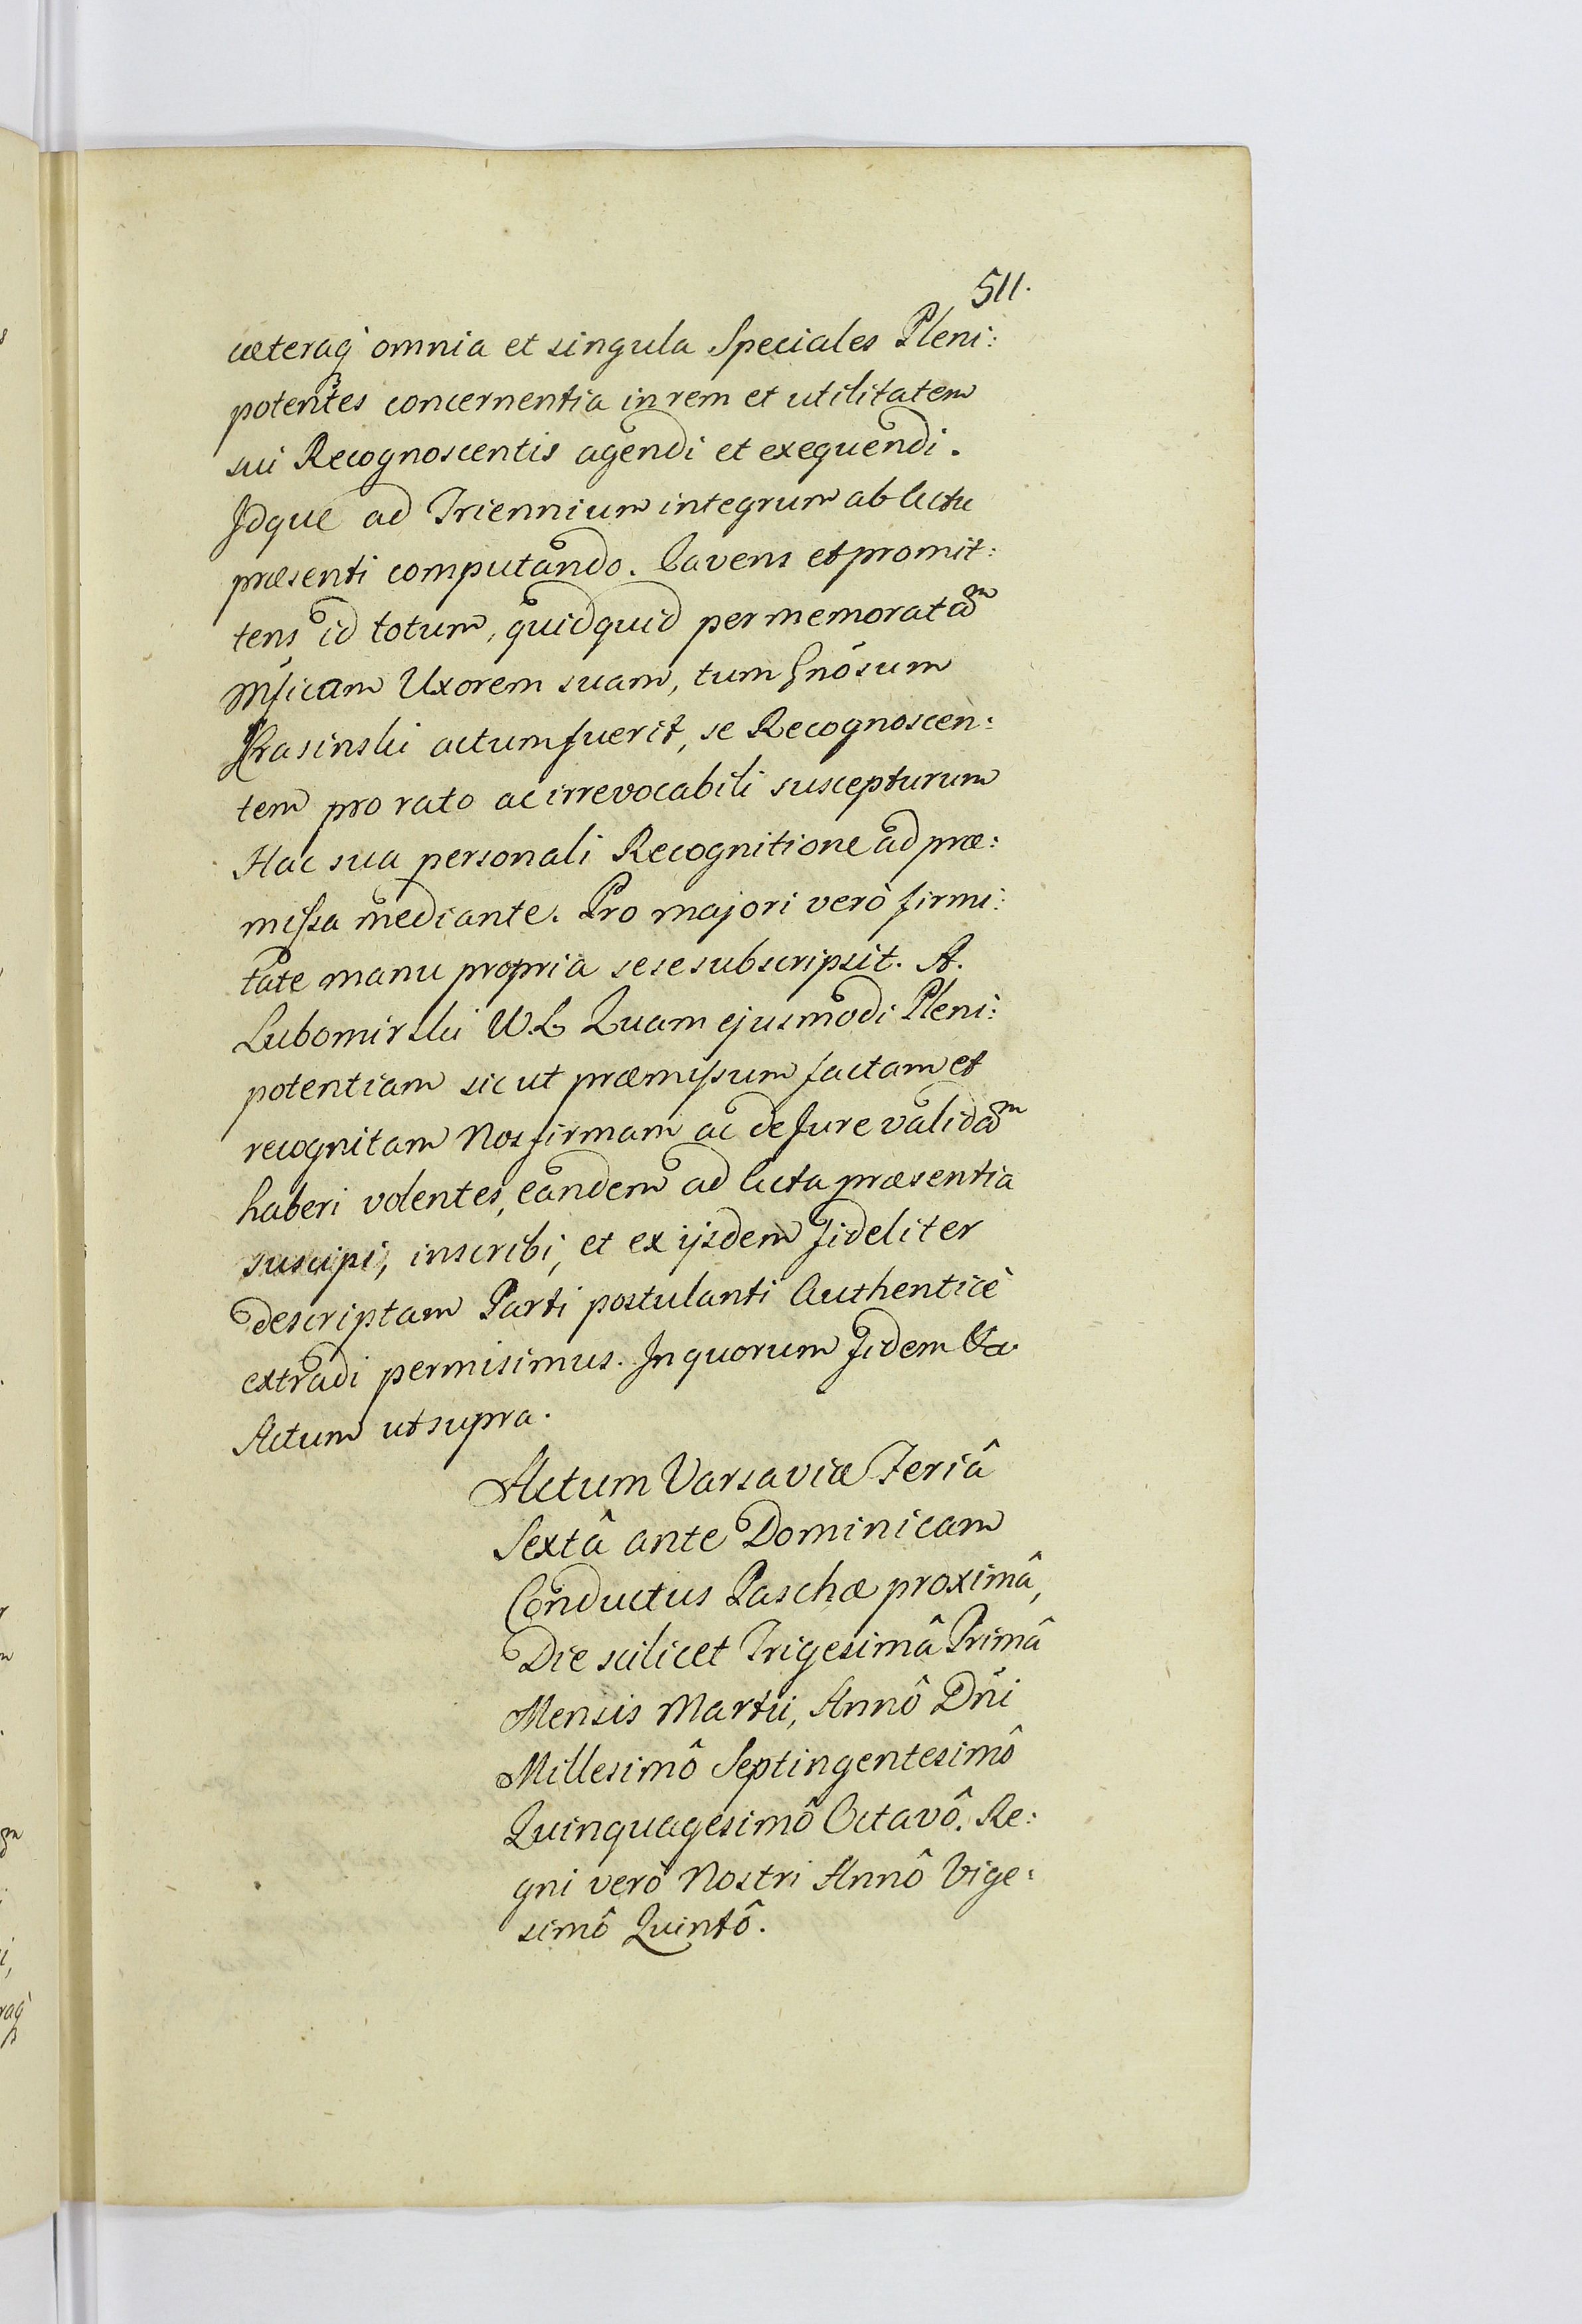 511.
cæteraq̀ omnia et singula Speciales Pleni:
potentes concernentia in rem et utilitatem
sui Recognoscentis agendi et exequendi.
Idque ad Triennium integrum ab Actu
præsenti computando. Cavens et promit:
tens id totum, quidquid per memoratãm
Mficam Uxorem suam, tum Gnõsum
Krasinski actum fuerit, se Recognoscen:
tem pro rato ac irrevocabili suscepturum
Hac sua personali Recognitione ad præ:
missa mediante. Pro majori verò firmi:
tate manu propria sese subscripsit. A.
Lubomirski W. L Quam ejusmodi Pleni:
potentiam sicut præmissum factam et
recognitam Nos firmam ac de Jure validam
haberi volentes, eandem ad Acta præsentia
suscipi, inscribi, et ex ijsdem fideliter
descriptam Parti postulanti Authenticè
extradi permisimus. In quorum fidem &a.
Actum ut supra.
Actum Varsaviæ Feriâ
Sextâ ante Dominicam
Conductus Paschæ proximâ,
Die scilicet Trigesimâ Primâ
Mensis Martii, Annô Dñi
Millesimô Septingentesimô
Quinquagesimô Octavô. Re:
gni verò Nostri Annô Vige:
simô Quintô.